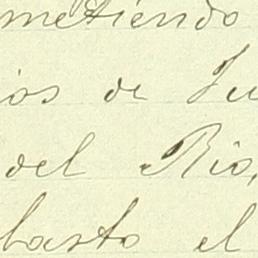 metiendo
ios de Ju
del Rio,
basta el